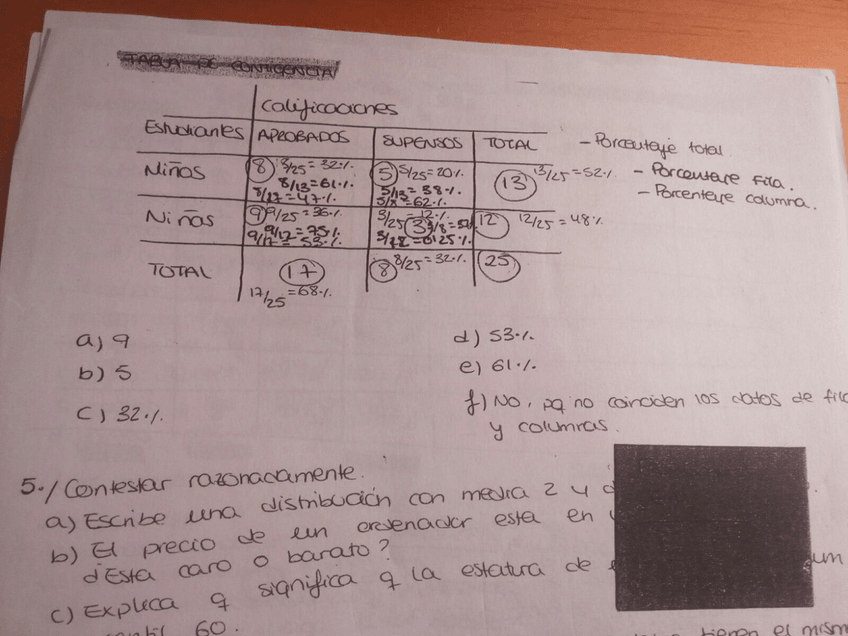 TABLA DE CONTIGENCIA
Calificaciones
Estudiantes APROBADOS SUPENSOS TOTAL
- Porcentaje total
- Porcentaje Fila.
- Porcentaje columna.
Niños 8 8/25=32% 5 5/25=20% 13 13/25=52%
8/13=61% 5/13=38%
8/17=47% 5/8=62%
Niñas 9 9/25=36% 3/25=12% 12 12/25=48%
9/12=75% 3 3/8=
9/17=53% 3/12=
TOTAL 17 8 8/25=32% 25
17/25=68%
a) 9
b) 5
c) 32%
d) 53%
e) 61%
f) No, pq no coinciden los datos de fila
y columnas.
5./ Contestar razonadamente.
a) Escribe una distribución con media 2 y d
b) El precio de un ordenador esta en
¿Esta caro o barato?
c) Explica q significa q la estatura de um
60.
tienen el mism